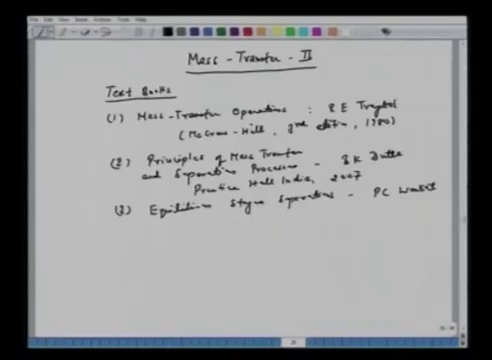 Mass-Transfer-II
Text Books
(1) Mass-Transfer Operations : R E Treybal
(McGraw-Hill, 3rd edition, 1980)
(2) Principles of Mass Transfer
and Separation Processes - B K Dutta
Prentice Hall India, 2007
(3) Equilibrium Stage Separations - PC Wankat